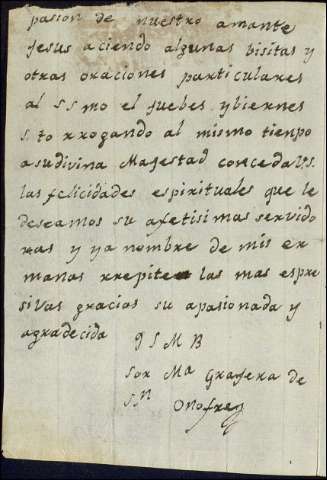 pasion de nuestro amante
Jesus aciendo algunas bisitas y
otras oraciones particulares
al SSmo el Juebes ybiernes
S.to rrogando al mismo tienpo
asudivina Magestad conceda V.S.
las felicidades espirituales que le
deseamos su afetisimas servido
ras y ya nombre de mis er
manas rrepite las mas espre
sivas gracias su apasionada y
agradecida
Q S M B
Sor Ma Grafera de
Sn Onofre